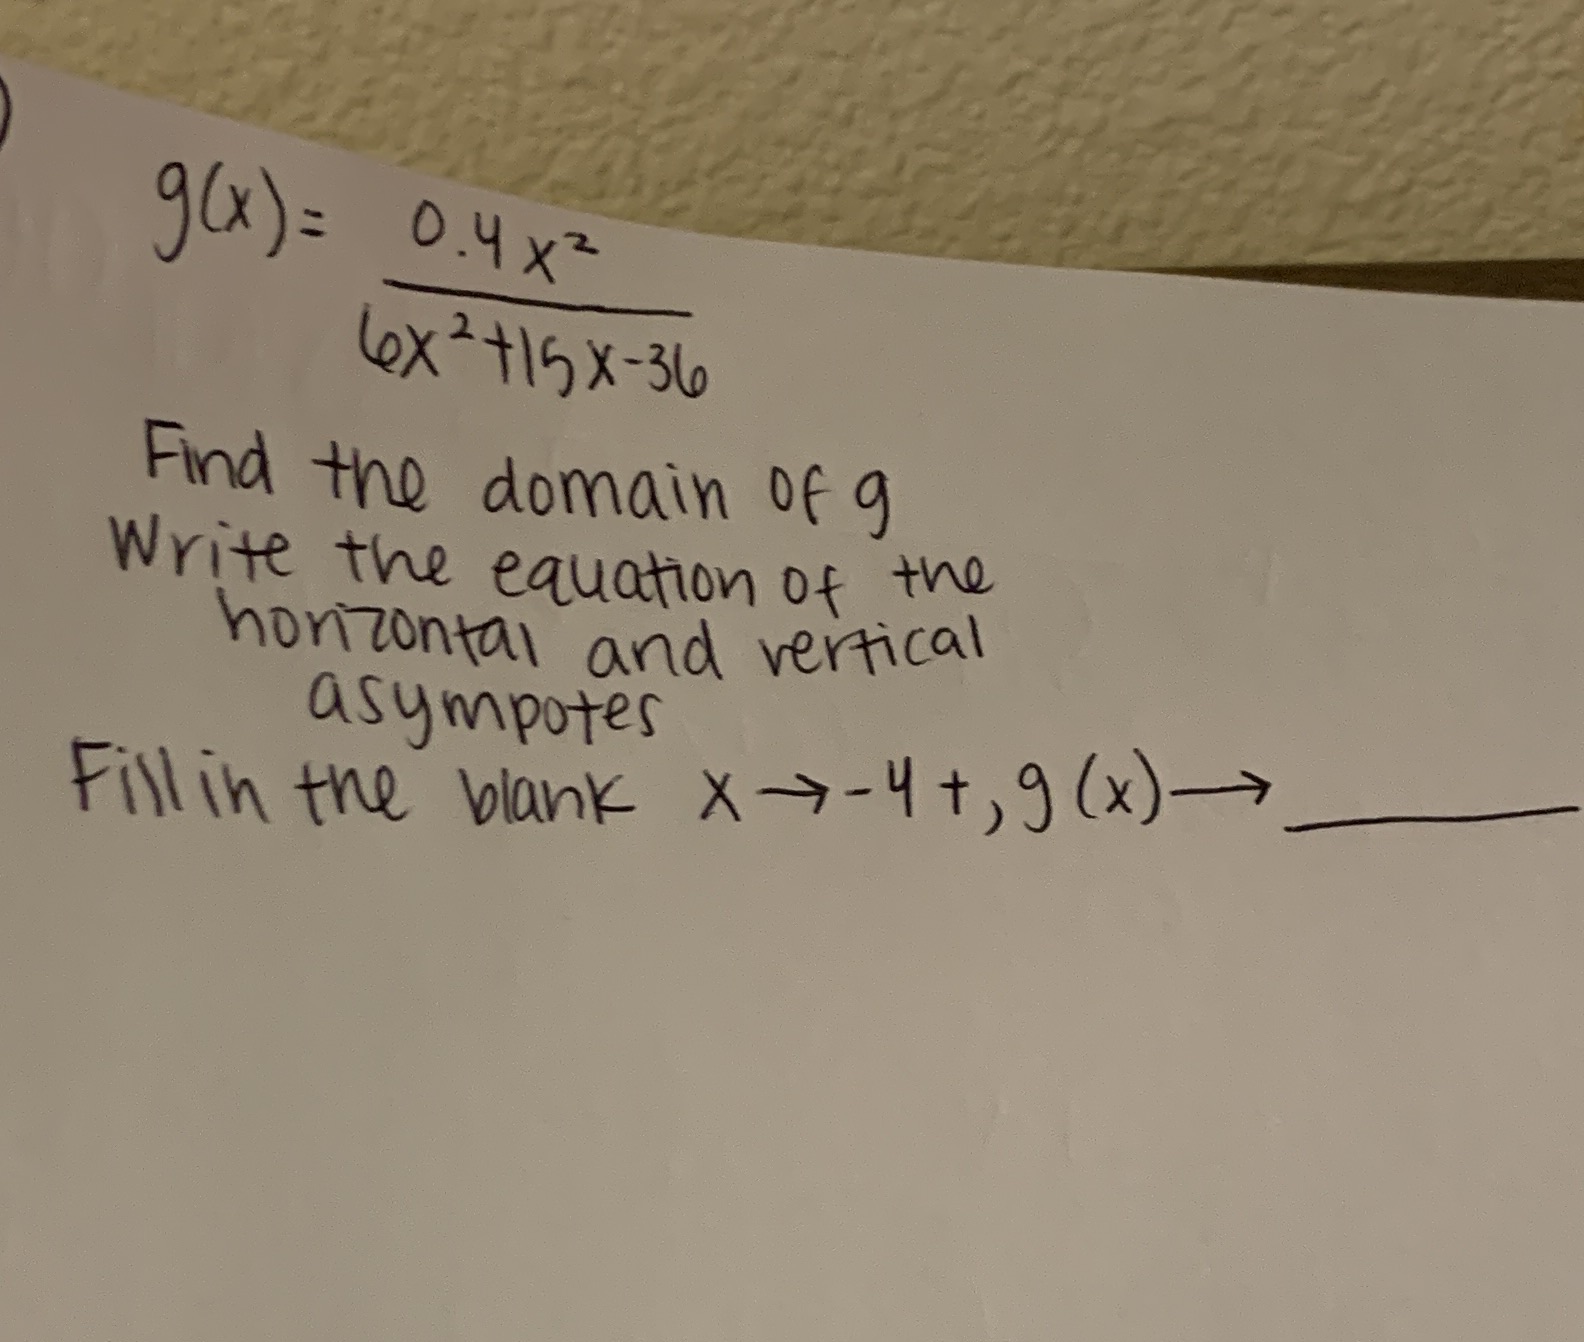 )
g(x)= 0.4x²
6x²+15x-36
Find the domain of g
Write the equation of the
horizontal and vertical
asympotes
Fill in the blank x→-4+, g(x)→ ______